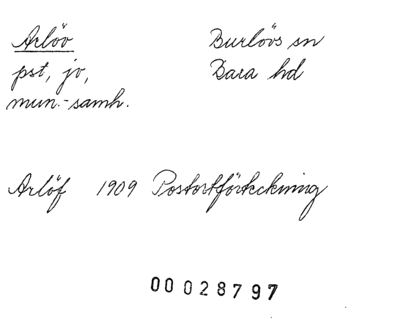 Arlöv Burlövs sn
pst, jv, Bara hd
mun.-samh.
Arlöf 1909 Postortförteckning
00028797